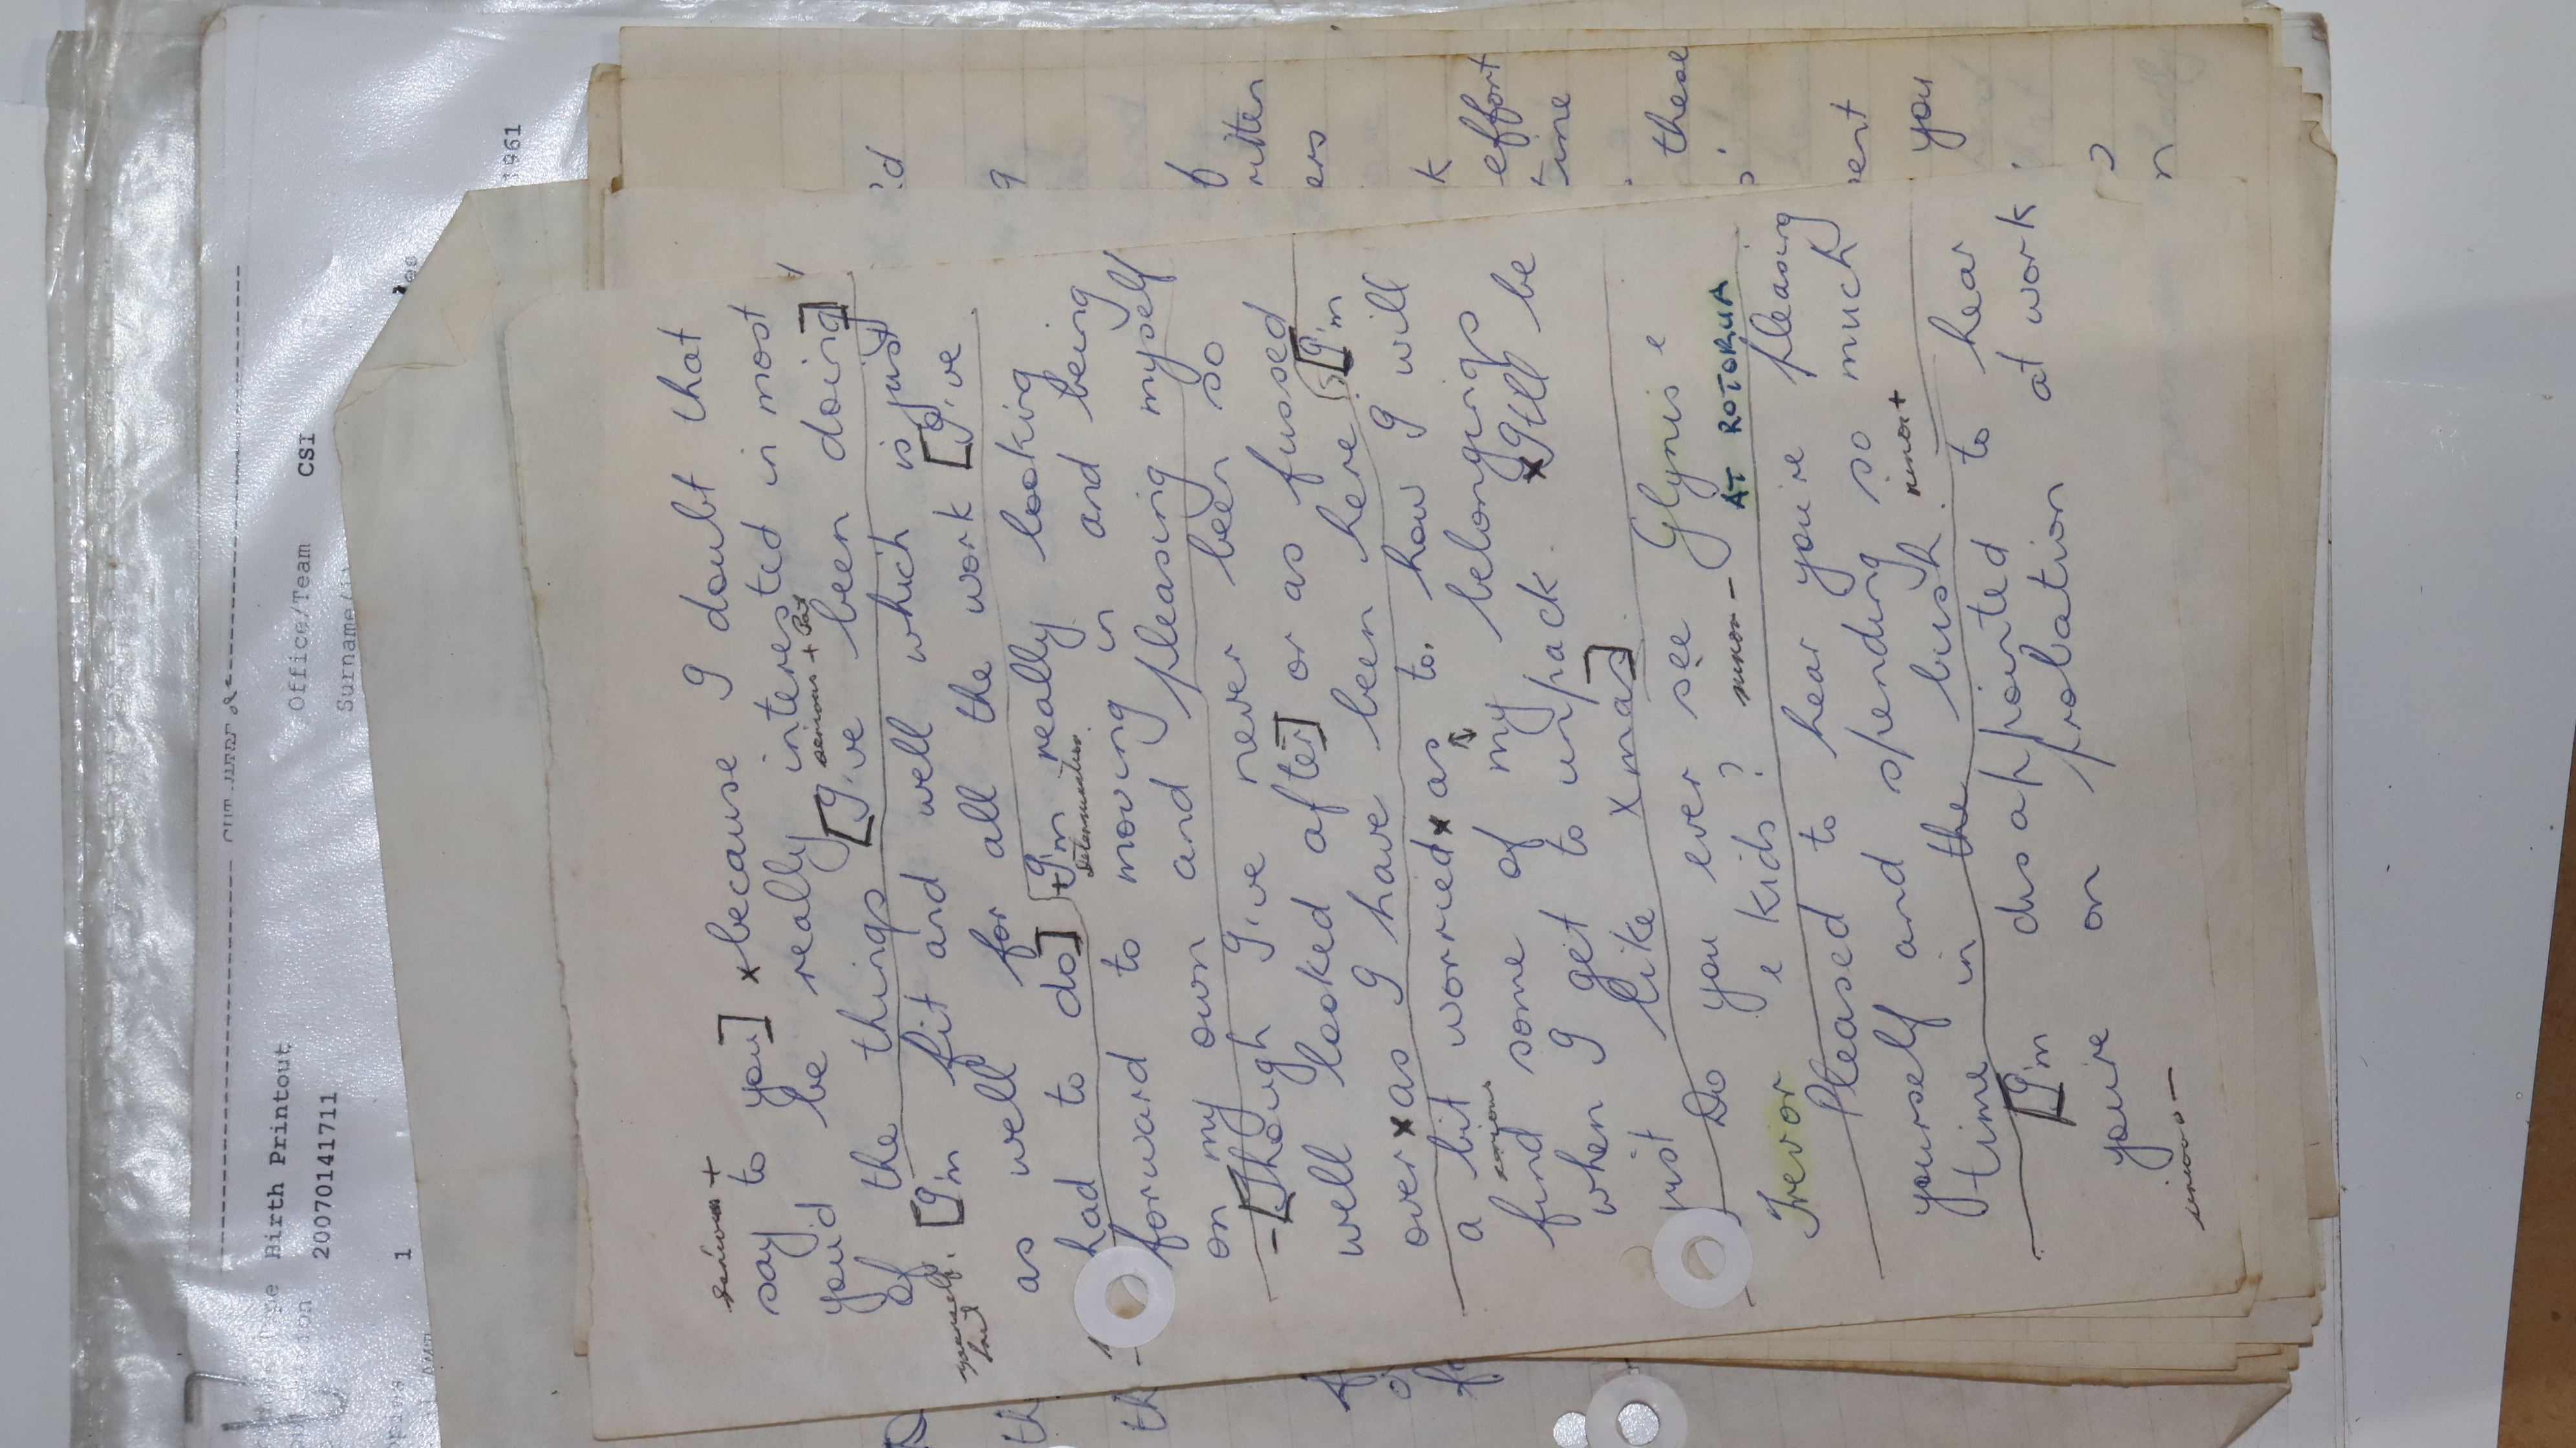 Birth Printout
Office/Team CSI
2007014171​1
1
serious +
say to you] x because I doubt that
you'd be really interested in most
serious + Pat
of the things [I've been doing]
yourself. [I'm fit and well which is just
but
as well for all the work [I've
had to do] + I'm really looking
Determination.
forward to moving in and being
on my own and pleasing myself
- [Though I've never been so
well looked after] or as fussed
over x as I have been here. [I'm
a bit worried x as to how I will
serious
find some of my belongings
when I get to unpack. x It'll be
just like xmas]
Do you ever see Glynis e
Trevor e kids? minor - AT ROTORUA
Pleased to hear you're pleasing
yourself and spending so much
time in the bush. minor +
[I'm disappointed to hear
you're on probation at work
serious -
effort
these
you